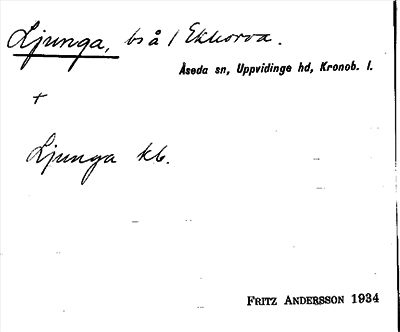 Ljunga, bs å / Ekhorva.
Åseda sn, Uppvidinge hd, Kronob. l.
+
Ljunga kb.
FRITZ ANDERSSON 1934